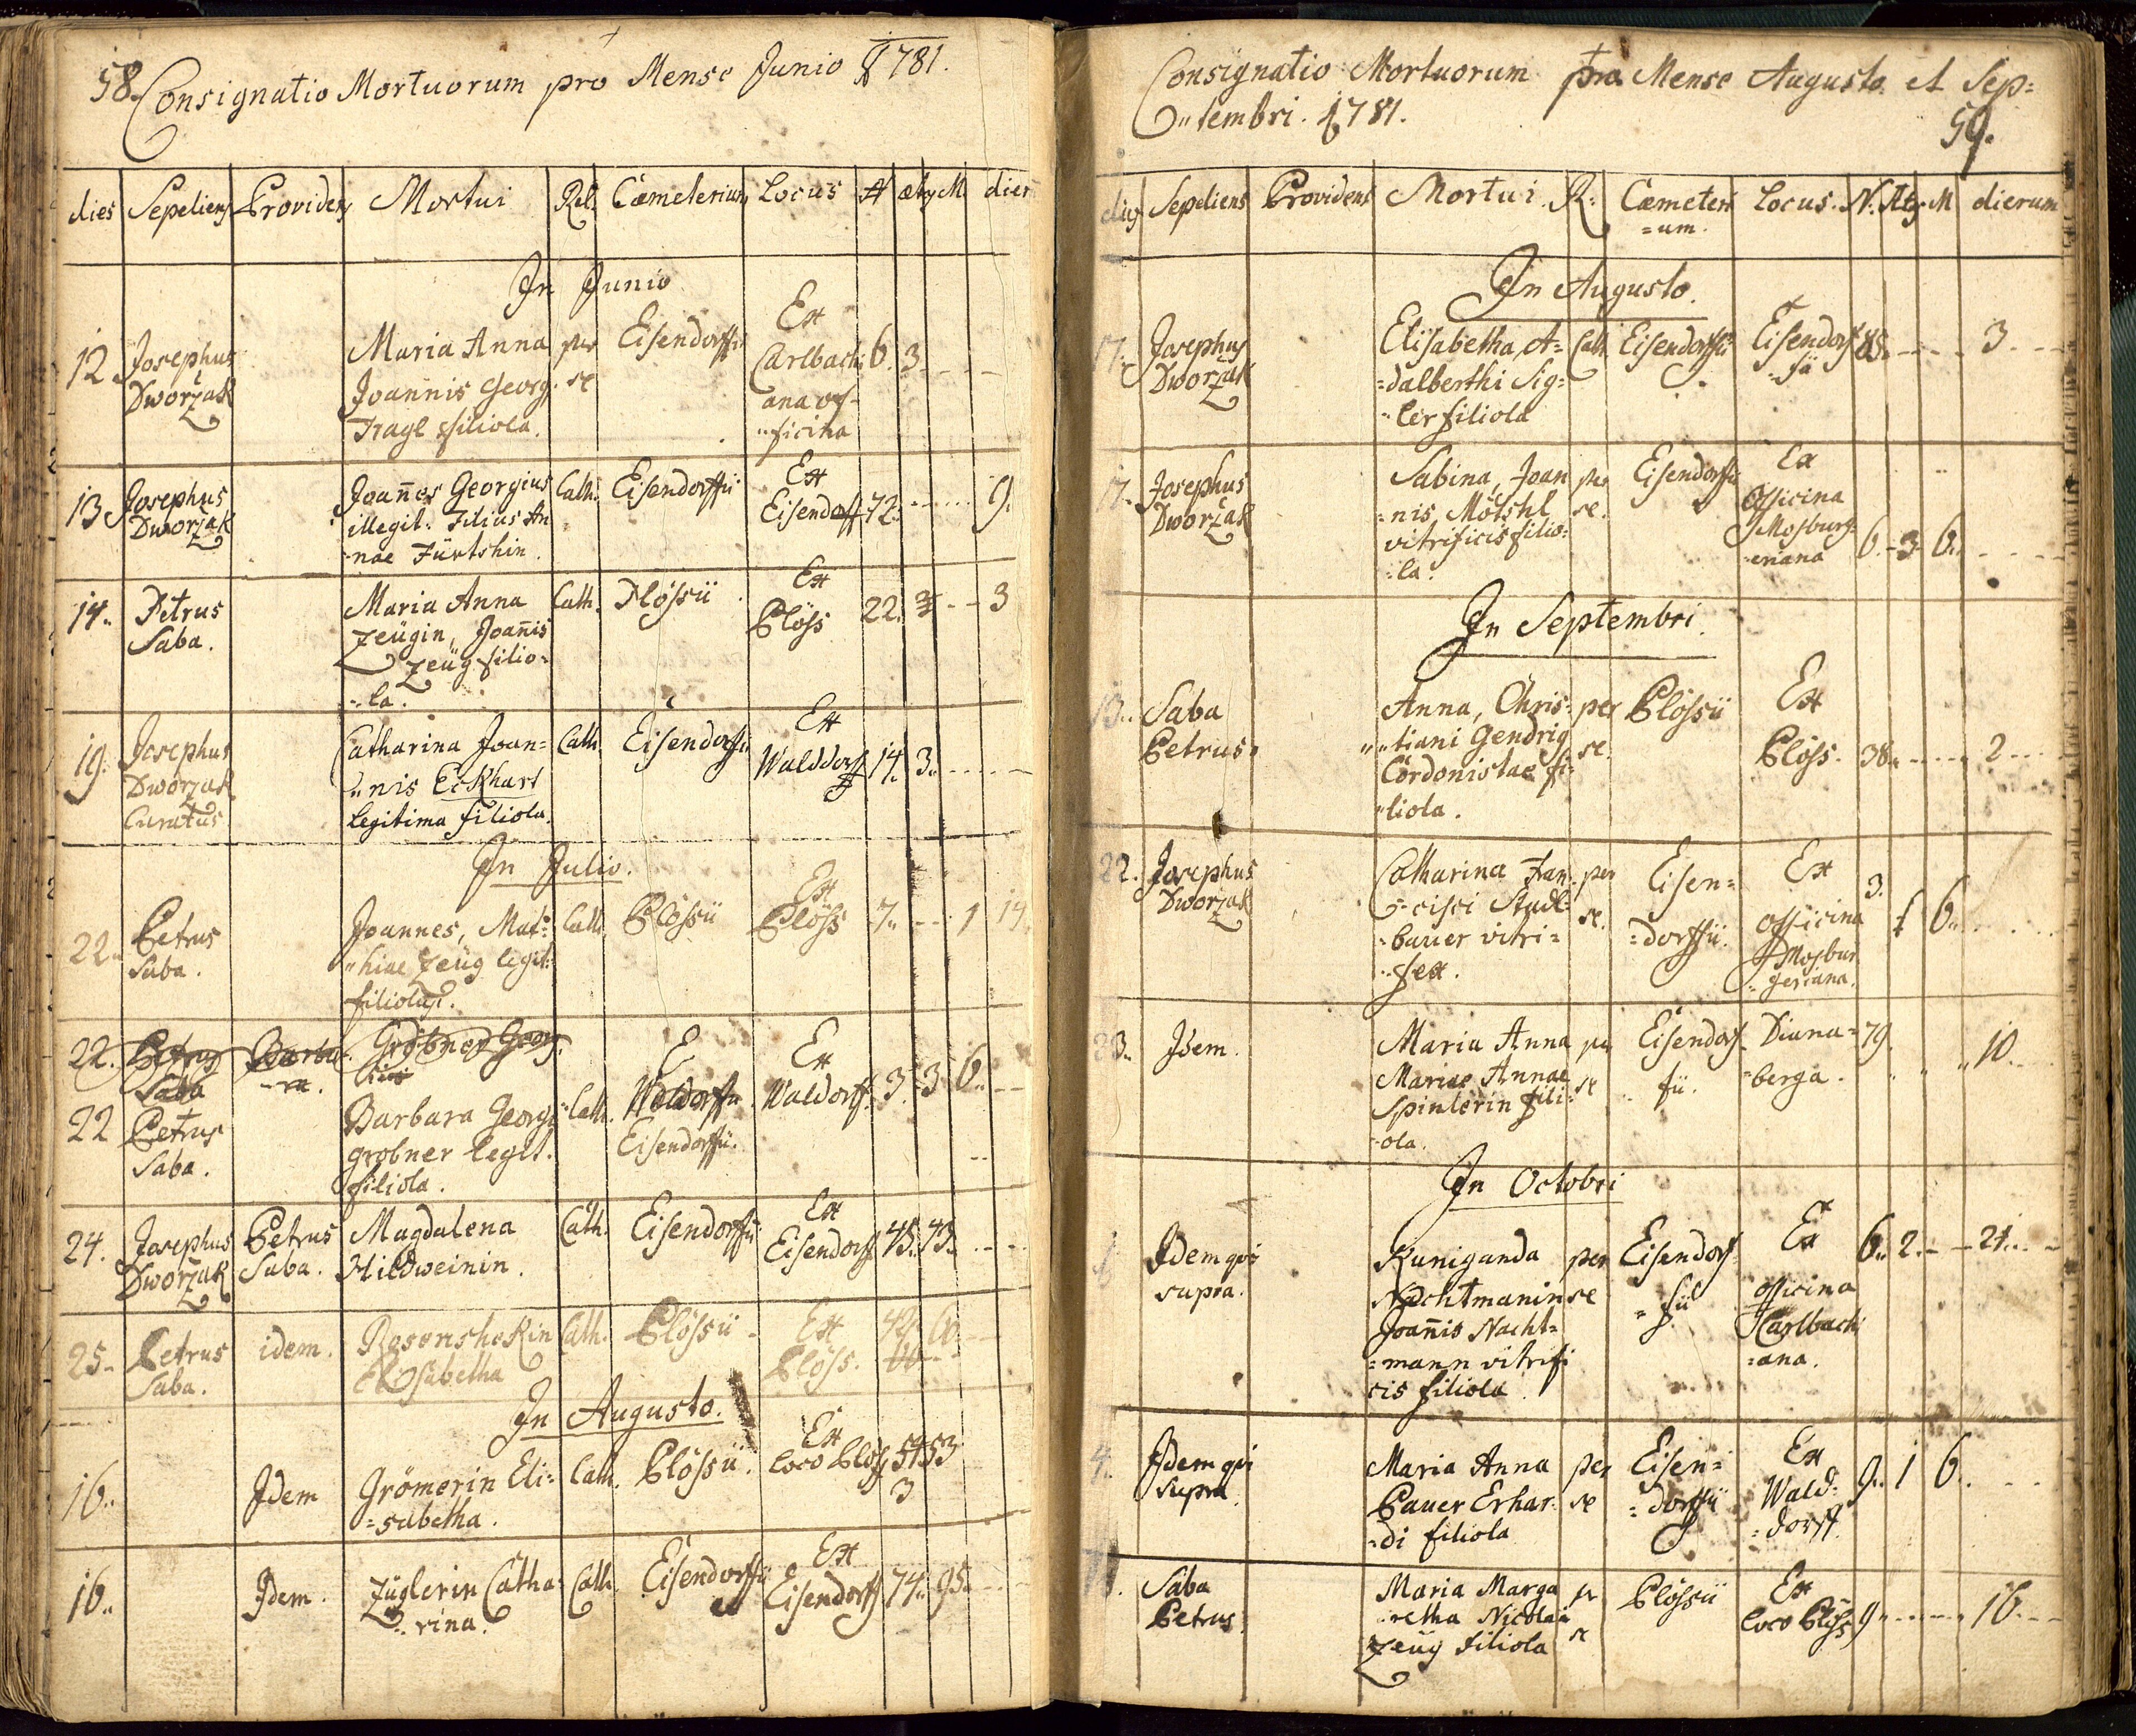 58. Consignatio Mortuorum pro Mense Junio 1781.
dies Sepeliens Providens Mortui Rel. Cœmeterium Locus N ætas M dier
In Junio
12 Josephus Dworžak Maria Anna Joannis Georg. Tragl filiola. per se Eisendorffii Ex Carlbachiana officina 6. 3
13 Josephus Dworžak Joañes Georgius illegit. Filius Annae Fürtshin. Cath. Eisendorffii Ex Eisendorff 72 9.
14. Petrus Saba. Maria Anna Zeügin, Joañis Zeüg filiola. Cath. Plössii Ex Plöss 22. 3
19. Josephus Dworžak Curatus Catharina Joannis Eckhart legitima filiola. Cath. Eisendorffii Ex Walddorf 14. 3
In Julio.
22. Petrus Saba. Joannes, Mathiae Zeüg legit. filiolus. Cath. Plössii Ex Plöss 7 1 14.
22. Petrus Saba Barbara. Grobner Georgii
22 Petrus Saba. Barbara Georgi grobner legit. filiola. Cath. Waldorffii Eisendorffii. Ex Waldorff. 3. 3 6
24. Josephus Dworžak Petrus Saba. Magdalena Hildweinin. Cath. Eisendorffii Ex Eisendorf 45. 43.
25. Petrus Saba. idem. Rosenshekin Elisabetha Cath. Plössii Ex Plöss. 60
In Augusto.
16. Idem Grömerin Elisabetha. Cath. Plössii. Ex loco Plöss 53 3
16. Idem. Züglerin Catharina. Cath. Eisendorffii Ex Eisendorff 74. 95.
Consignatio Mortuorum pro Mense Augusto et Sep=
tembri. 1781.
59.
dies Sepeliens Providens Mortui. R: Cœmeterium. Locus. N. Ætas M dierum
In Augusto.
17. Josephus Dworžak Elisabetha, A=dalberthi Sigler filiola Cath. Eisendorffii Eisendorffii 88. 3
17. Josephus Dworžak Sabina, Joannis Mötshl vitrificis filiola. per se. Eisendorffii Ex Officina Mosburgeriana 6. 3 6
In Septembri.
13. Saba Petrus. Anna, Christiani Gendrig Cordonistae filiola. per se. Plössii Ex Plöss. 38. 2
22. Josephus Dworžak Catharina Francisci Stadlbauer vitrifex. per se. Eisen=dorffii. Ex officina Mosburgeriana. 3. 1 6
23. Idem. Maria Anna Mariae Annae Spinlerin filiola. per se Eisendorffii. Dianaberga. 79. 10.
In Octobri
Idem qui supra. Kunigunda Nachtmanin Joañis Nacht=mann vitrificis filiola. per se Eisendorffii Ex officina Carlbachiana. 6. 2. 21.
4. Idem qui supra. Maria Anna Pauer Erhardi filiola per se Eisen=dorffii Ex Wald=dorff. 9. 1 6.
Saba Petrus. Maria Margaretha Nicolai Zeüg filiola per se Plössii Ex loco Plöss 9 16.